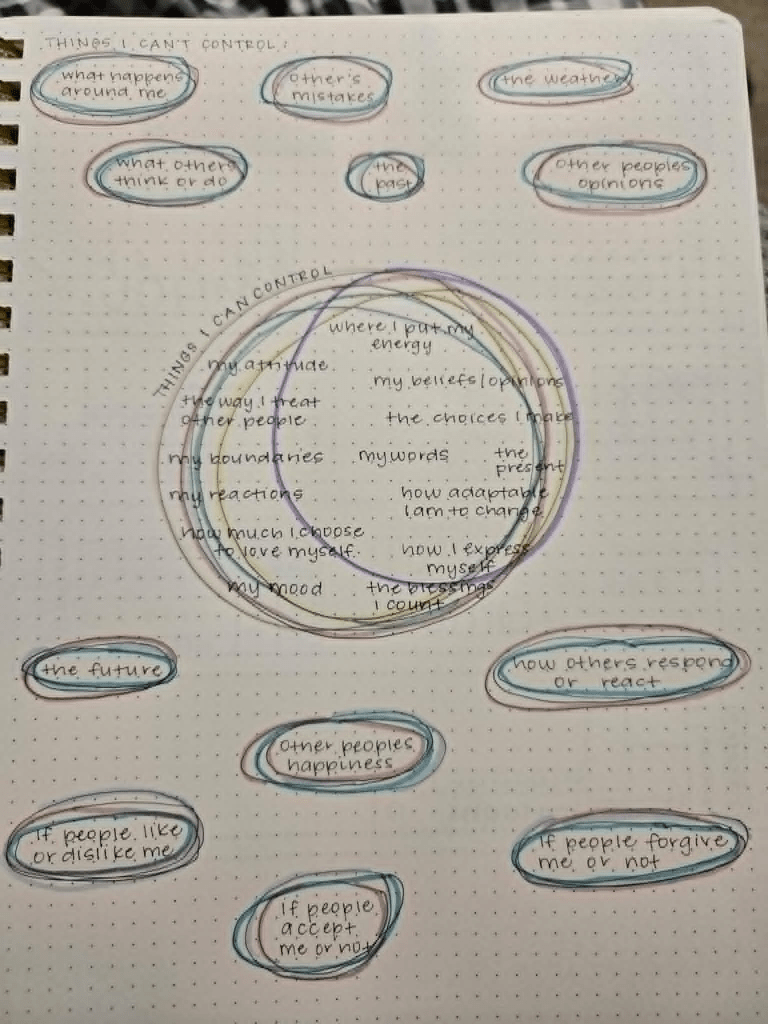 THINGS I CAN'T CONTROL:
what happens
around me
other's
mistakes
the weather
what others
think or do
the
past
other peoples
opinions
THINGS I CAN CONTROL
where I put my
energy
my attitude
my beliefs/opinions
the way I treat
other people
the choices I make
my boundaries
my words
the
present
my reactions
how adaptable
I am to change
how much I choose
to love myself.
how I express
myself
my mood
the blessings
I count
the future
how others respond
or react
other peoples
happiness
if people like
or dislike me
if people forgive
me or not
if people
accept
me or not